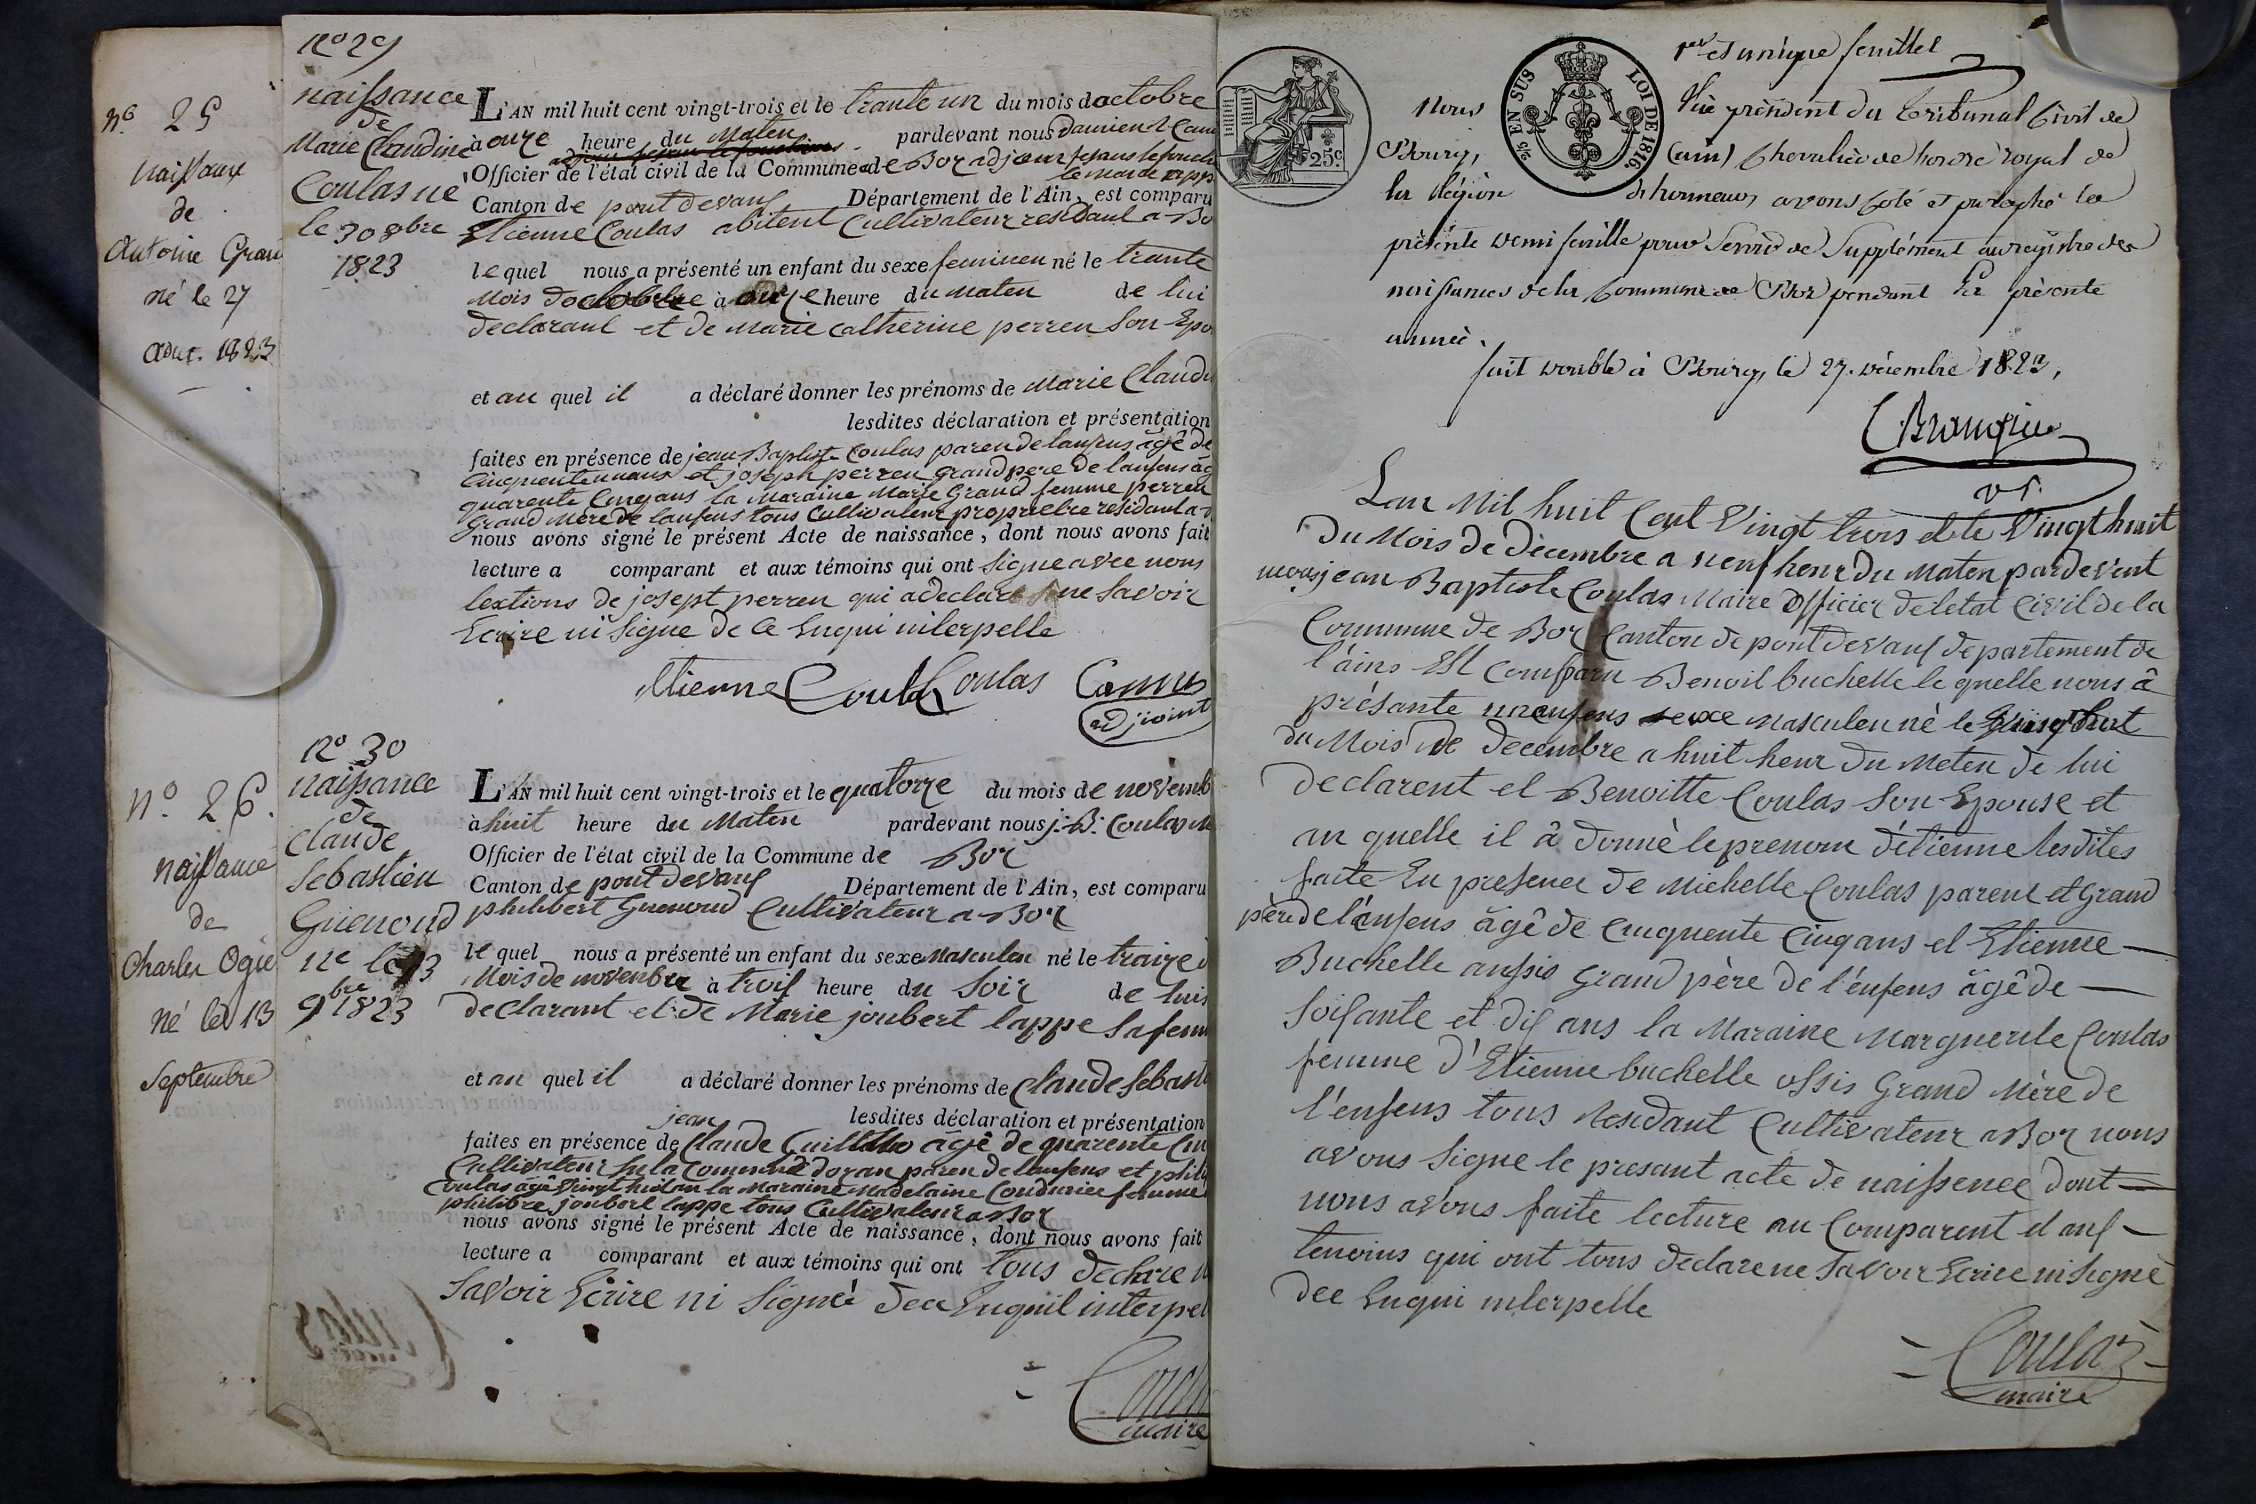 n.o 25
naissance
de
Antoine Grand
né le 27
aout. 1823
n.o 26.
naissance
de
Charles Ogie
né le 13
Septembre
No 29
naissance
de
Marie Claudine
Coulas né
le 30 8bre
1823
L'AN mil huit cent vingt-trois et le trante un du mois doctobre
à onze heure du Maten pardevant nous damien
Officier de l'état civil de la Commune de Boz adjoint
Canton de pont devaus Département de l'Ain, est comparu
Etienne Coulas abitent Cultivateur residant a Bo
le quel nous a présenté un enfant du sexe feminen né le trante
Mois doctobre à onze heure du maten de lui
declarant et de Marie Catherine perren Son Epo
et au quel il a déclaré donner les prénoms de Marie Claudi
lesdites déclaration et présentation
faites en présence de jean Baptiste Coulas paren de lanfens âgé de
Cinquente et joseph perren grand pere de lanfens âg
quarente Cinq ans la Maraine Marie Grand femme perren
Grand Mere de lanfens tous Cultivateur residant a
nous avons signé le présent Acte de naissance, dont nous avons fait
lecture a comparant et aux témoins qui ont Signe avec nous
de josept perren qui a declare ne Savoir
Ecrire ni Signe de Ce Enqui interpelle
Etienne Coulas Coulas Camus
adjoint
No 30
naissance
de
Claude
Sebastien
Guenoud
ne le 13
9bre 1823
L'AN mil huit cent vingt-trois et le quatorze du mois de novemb
à huit heure du Maten pardevant nous j: B: Coulas M
Officier de l'état civil de la Commune de Boz
Canton de pont devaus Département de l'Ain, est comparu
philibert Guenoud Cultivateur a Boz
le quel nous a présenté un enfant du sexe Masculen né le traize d
Mois de novembre à trois heure du Soir de lui
declarant et de Marie joubert lappe Sa fem
et au quel il a déclaré donner les prénoms de Claude Sebasti
jean lesdites déclaration et présentation
faites en présence de Claude âgé de quarente Cin
Cultivateur paren de lanfens et phili
Coulas âgé Vingt huit an la Maraine Madelaine femme
philibre joubert lappe tous Cultivateur a Boz
nous avons signé le présent Acte de naissance, dont nous avons fait
lecture a comparant et aux témoins qui ont tous declare n
Savoir Ecrire ni Signé de ce Enquil interpel
Coula
maire
25c
2/5 EN SUS
LOI DE 1816.
1er et unique feuillet
Nous Vice président du Tribunal Civil de
Bourg, (ain) Chevalier de l'ordre royal de
la légion d'honneur, avons coté et paraphé la
présente demi feuille pour Servir de Supplément au registre des
naissances de la Commune de Boz pendant la présente
année.
fait double à Bourg, le 27. décembre 1823,
Lan Mil huit Cent Vingt trois et le Vingt huit
Du Mois de Décembre a neuf heur du maten pardevent
nous jean Baptiste Coulas Maire officier de letat Civil de la
Commune de Boz Canton de pont devaus departement de
l'ains Est comparu Benoit buchelle le quelle nous â
présante un enfens sexe masculen né le Vingt huit
du Mois de decembre a huit heur du Meten de lui
declarent et Benoitte Coulas Son Epouse et
au quelle il â donnè le prenom détienne lesdites
faite En presence de Michelle Coulas parent et Grand
père de l'énfens âgê de Cinquente Cinq ans et Etienne
Buchelle aussis Grand père de l'énfens âgê de
Soisante et dis ans la Maraine Marguerite Coulas
femme d'Etienne buchelle ossis Grand Mère de
l'enfens tous Residant Cultivateur a Boz nous
avons Signe le presant acte de naissence dont
nous avons faite lecture au Comparent et aus
temoins qui ont tous declare ne Savoir Ecrire ni Signé
dee Enqui interpelle
Coulas
maire